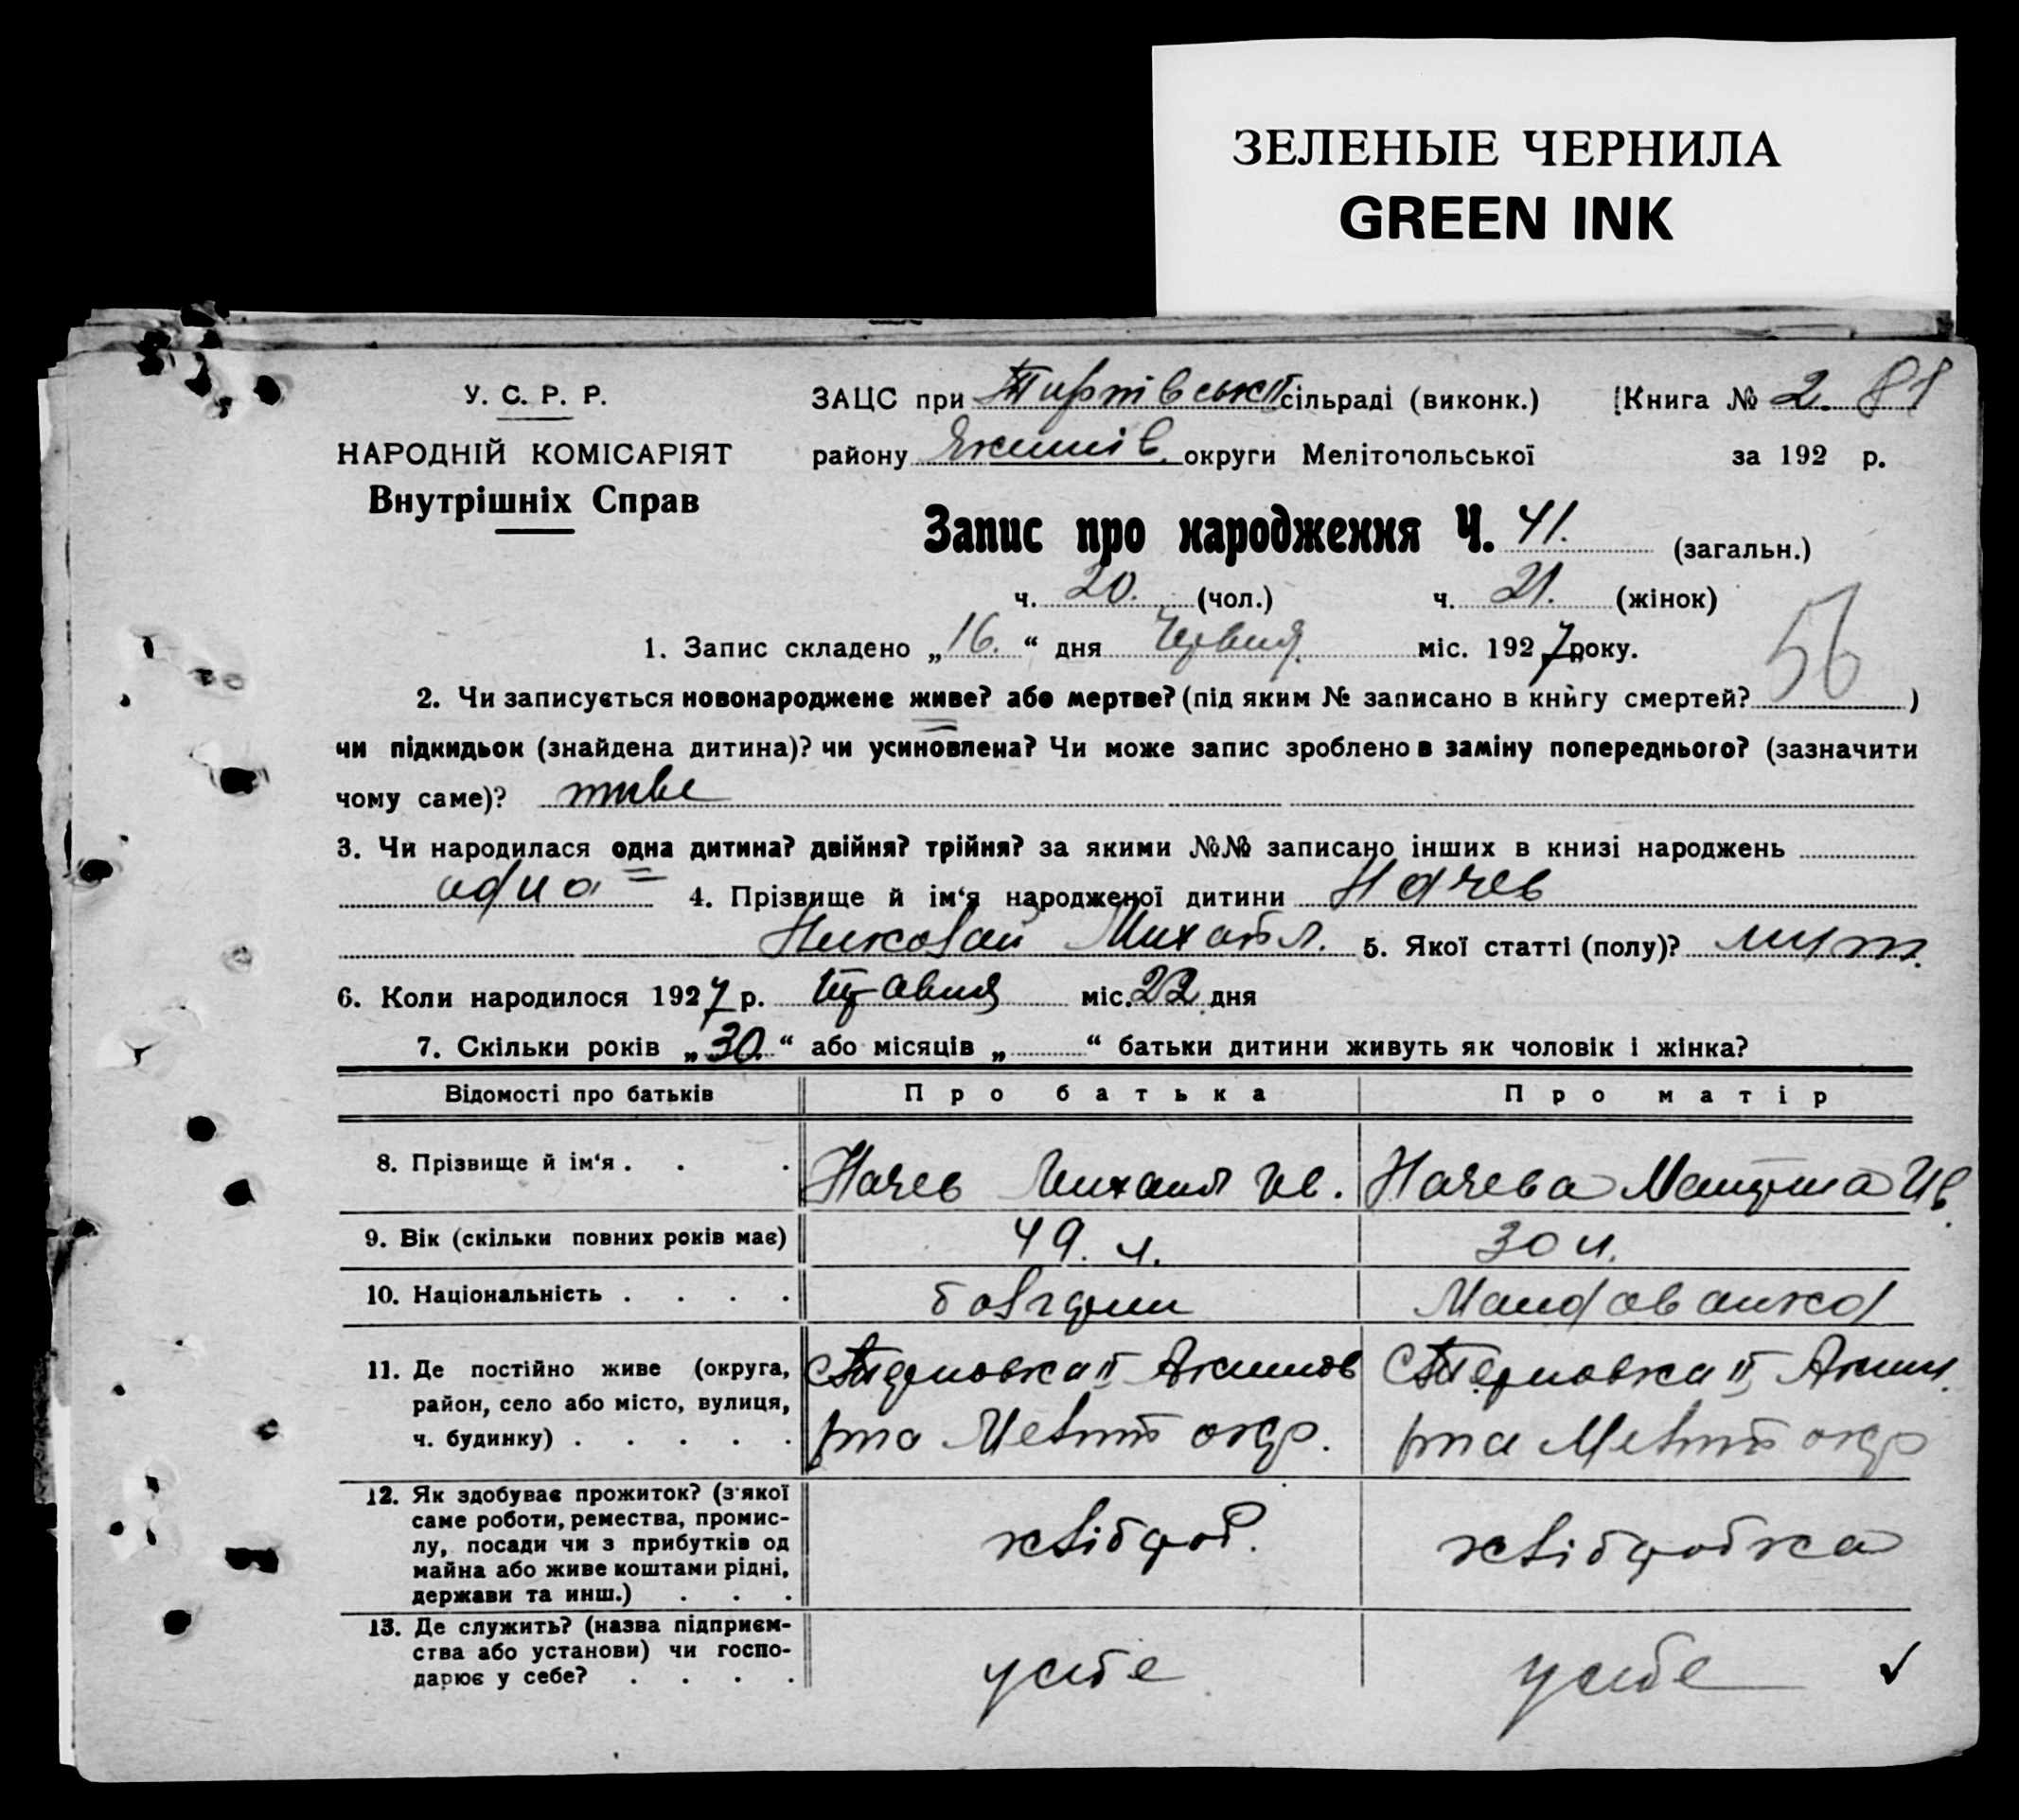 ЗЕЛЕНЫЕ ЧЕРНИЛА
GREEN INK
У. С. Р. Р.
НАРОДНІЙ КОМІСАРІЯТ
Внутрішніх Справ
ЗАЦС при сільраді (виконк.) Книга № 2.
району Якимів. округи Мелітопольської за 192 р.
Запис про народження Ч. 41. (загальн.)
ч. 20. (чол.) ч. 21. (жінок)
1. Запис складено „16.“ дня Червня міс. 1927 року.
56
2. Чи записується новонароджене живе? або мертве? (під яким № записано в книгу смертей? )
чи підкидьок (знайдена дитина)? чи усиновлена? Чи може запис зроблено в заміну попереднього? (зазначити
чому саме)? живе
3. Чи народилася одна дитина? двійня? трійня? за якими №№ записано інших в книзі народжень
одна 4. Прізвище й ім‘я народженої дитини Начев
Николай Михайл. 5. Якої статті (полу)? муж.
6. Коли народилося 1927 р. травня міс. 22 дня
7. Скільки років „30.“ або місяців „ “ батьки дитини живуть як чоловік і жінка?
Відомості про батьків Про батька Про матір
8. Прізвище й ім‘я . . . Начев Михаил Ив. Начева Ив.
9. Вік (скільки повних років має) 49. л. 30 л.
10. Національність . . . . болгарин
11. Де постійно живе (округа, Терновка II Акимов Терновка II Аким.
район, село або місто, вулиця,
ч. будинку) . . . . . р-на Мелит окр. р-на Мелит окр
12. Як здобуває прожиток? (з'якої
саме роботи, ремества, промис-
лу, посади чи з прибутків од хлібороб. хліборобка
майна або живе коштами рідні,
держави та инш.) . . .
13. Де служить? (назва підприєм-
ства або установи) чи госпо- у себе у себе
дарює у себе? . . . .